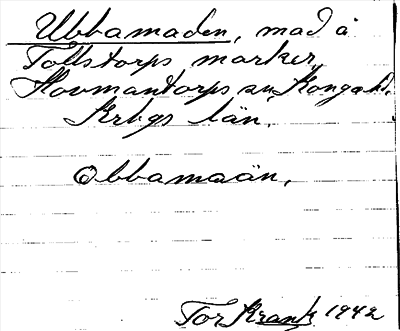 Ubbamaden, mad å
Tollstorps marker,
Hovmantorps sn, Konga hd.
Krbgs län.
Obbamaän.
Tor Krank 1942